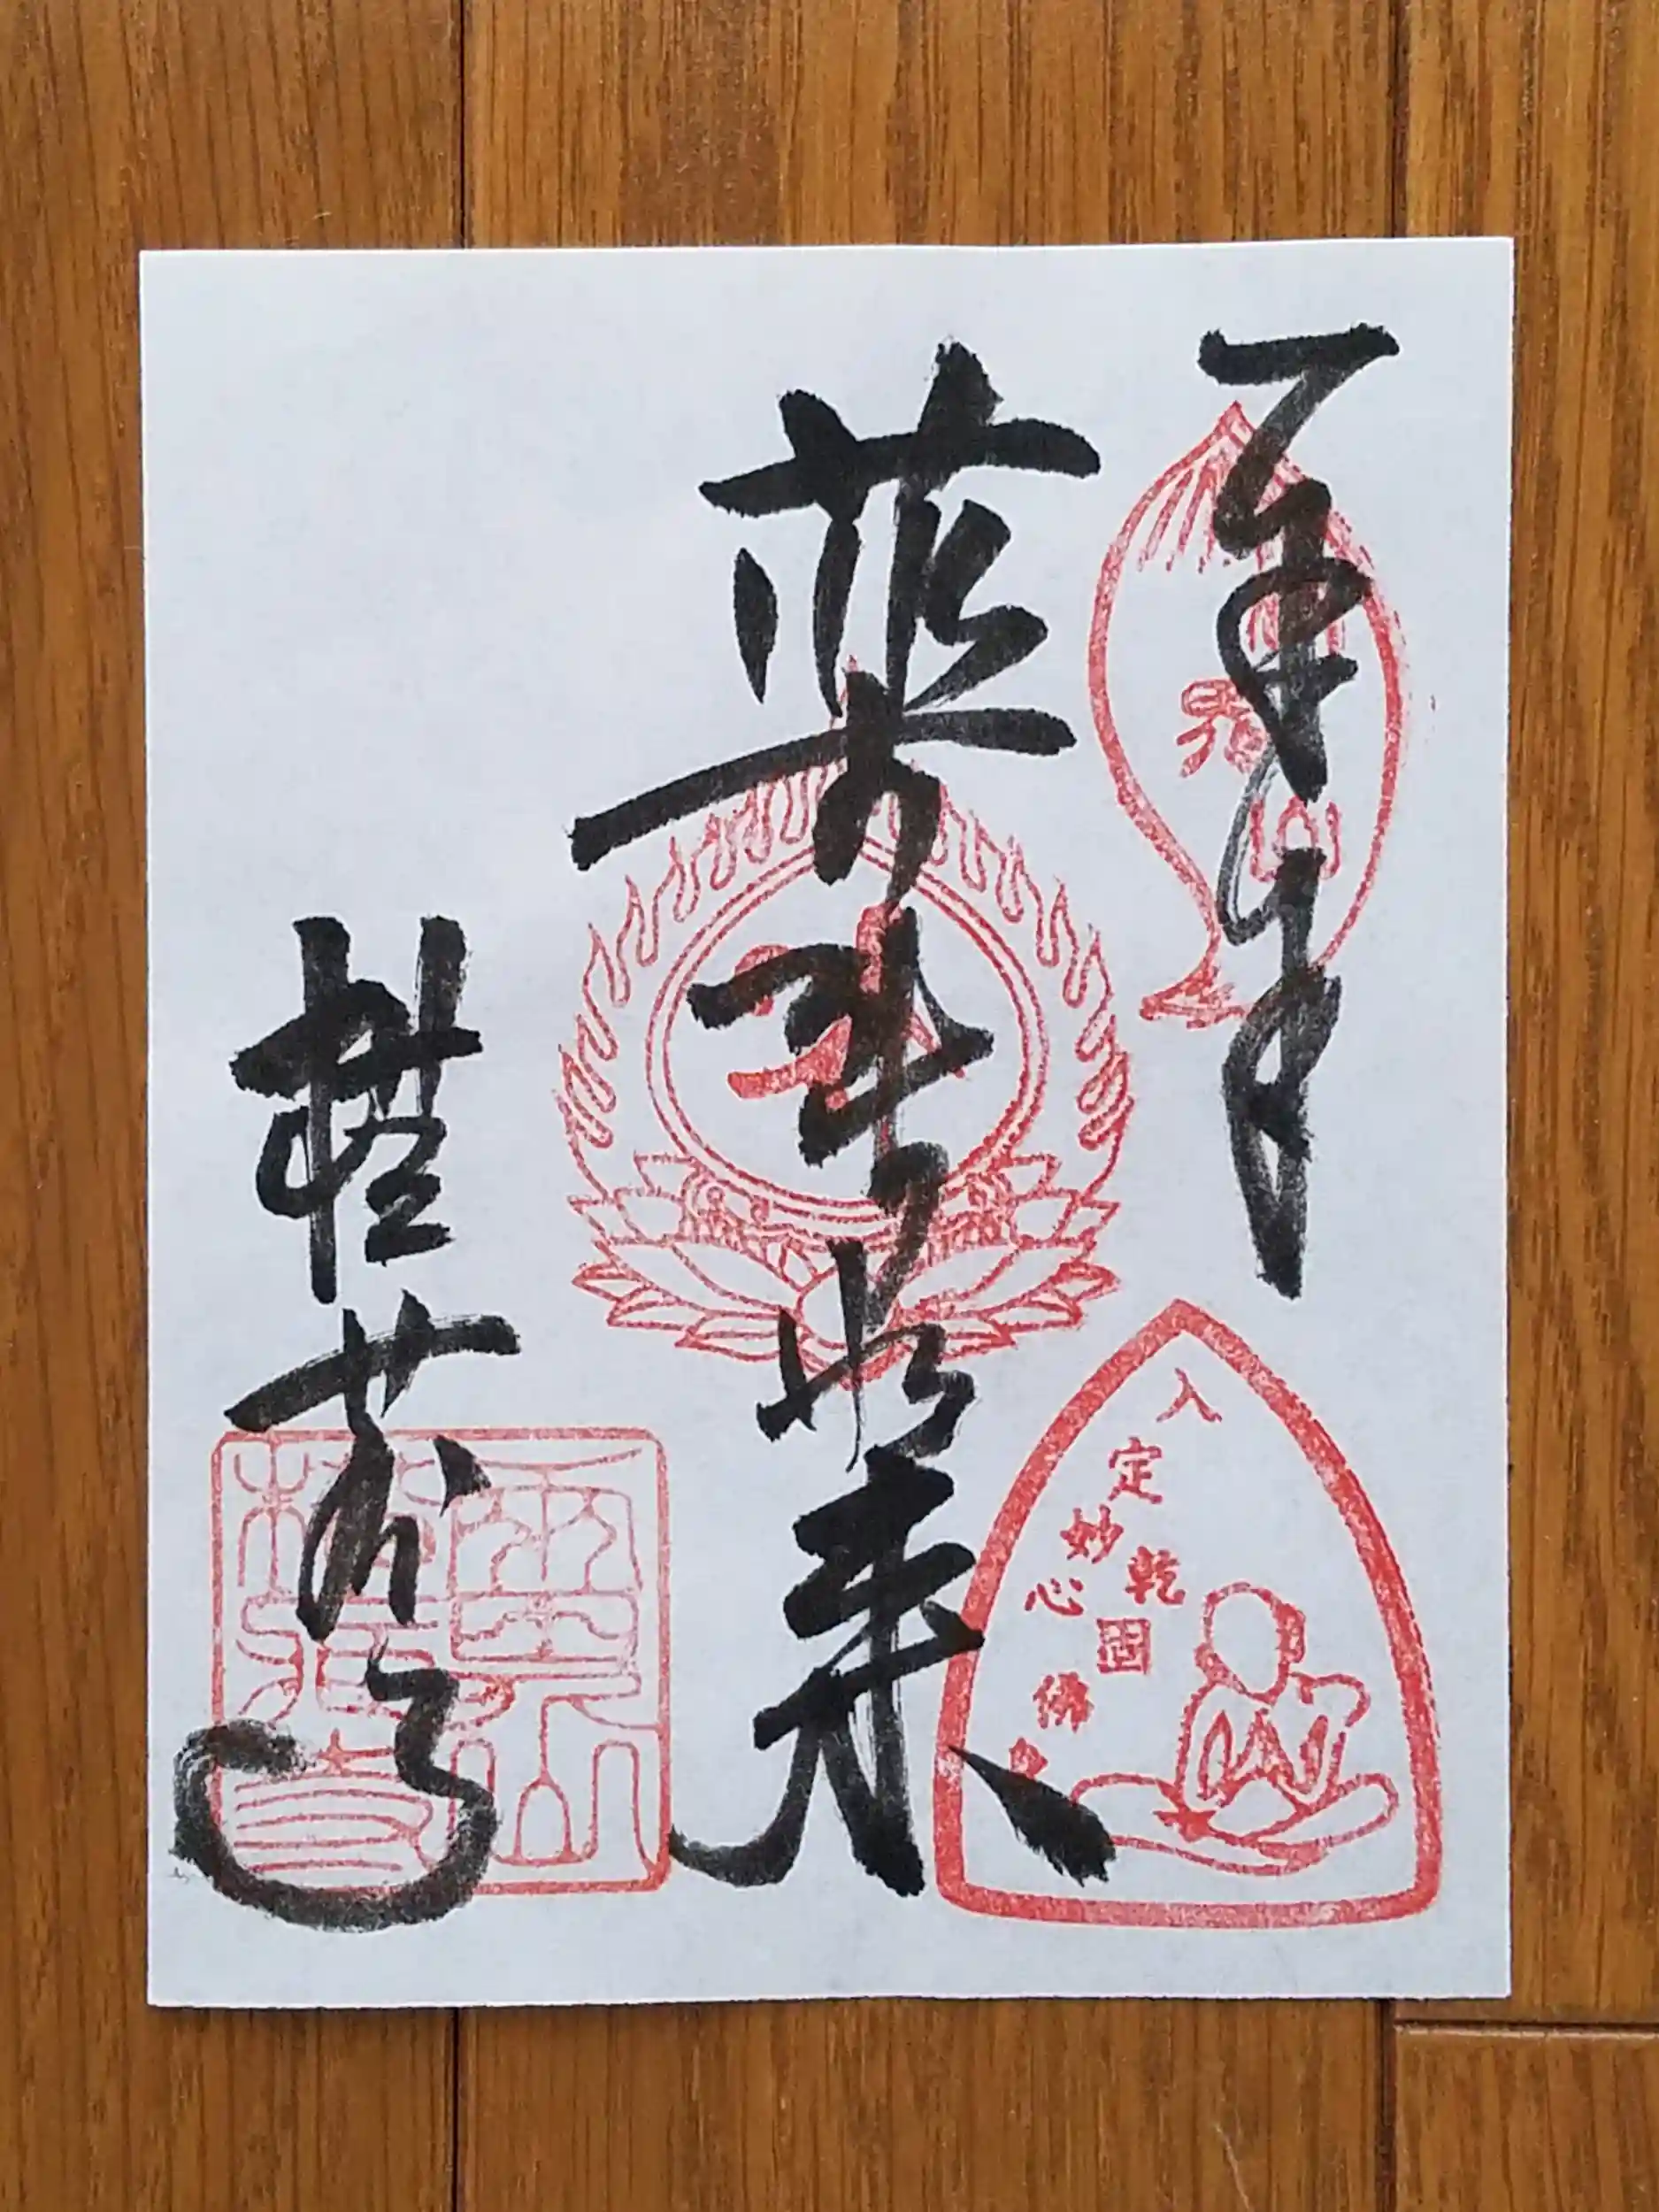 奉拝
薬師如来
横蔵寺
入定妙心
乾固佛